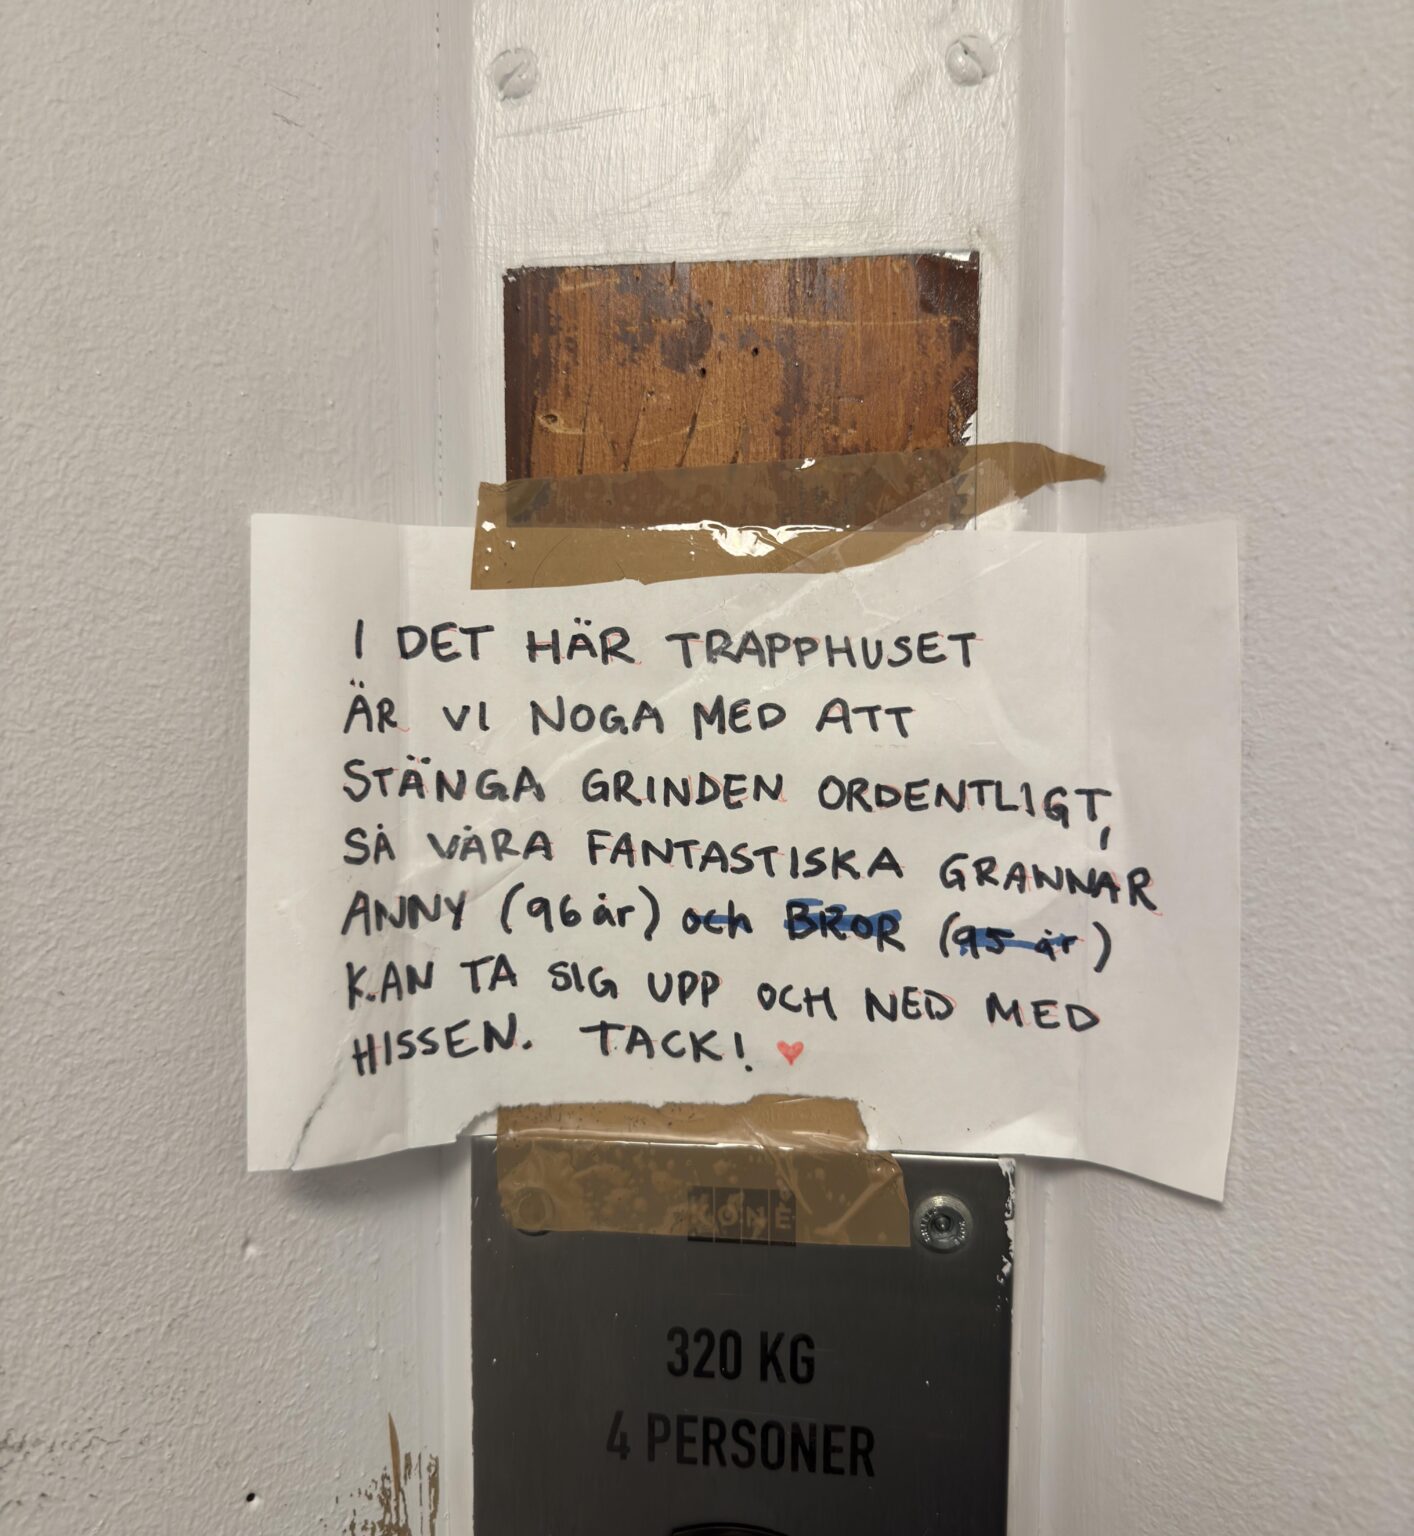 I DET HÄR TRAPPHUSET
ÄR VI NOGA MED ATT
STÄNGA GRINDEN ORDENTLIGT,
SÅ VÅRA FANTASTISKA GRANNAR
ANNY (96 år) och BROR (95 år)
KAN TA SIG UPP OCH NED MED
HISSEN. TACK! ♥
KONE
320 KG
4 PERSONER